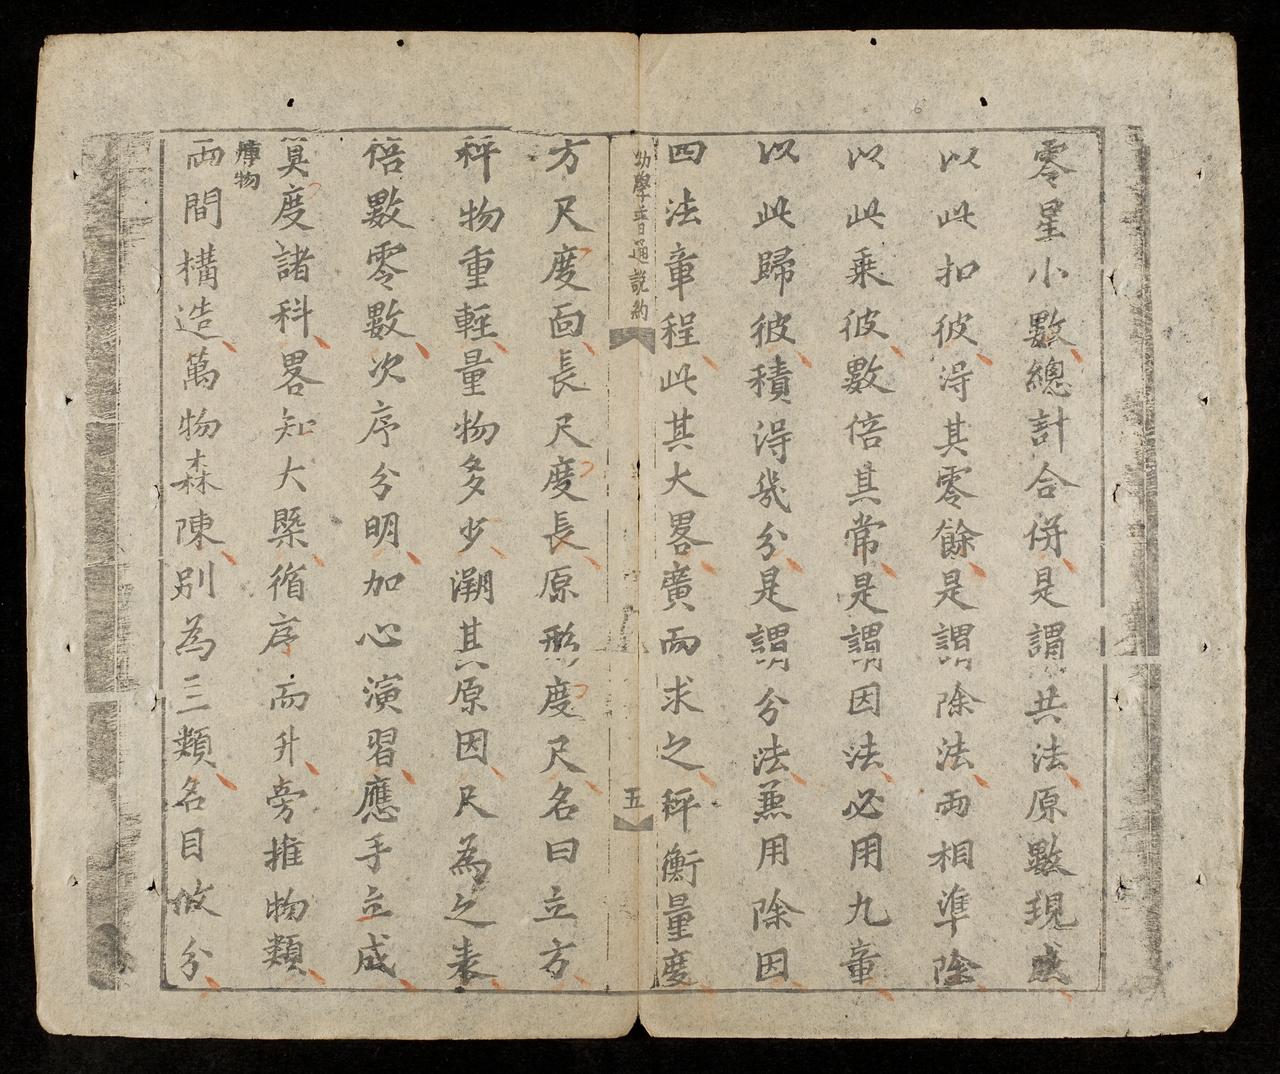 零星小數總計合併是謂共法原數現成
以此扣彼淂其零餘是謂除法兩相準除
以此乘彼數倍其常是謂因法必用九章
以此歸彼積淂幾分是謂分法兼用除因
四法章程此其大畧廣而求之秤衡量度
幼學普通說約
五
方尺度面長尺度長原形度尺名曰立方
秤物重輕量物多少溯其原因尺為之表
倍數零數次序分明加心演習應手立成
算度諸科畧知大槩循序而升旁推物類
博物
兩間構造萬物森陳別為三類名目攸分